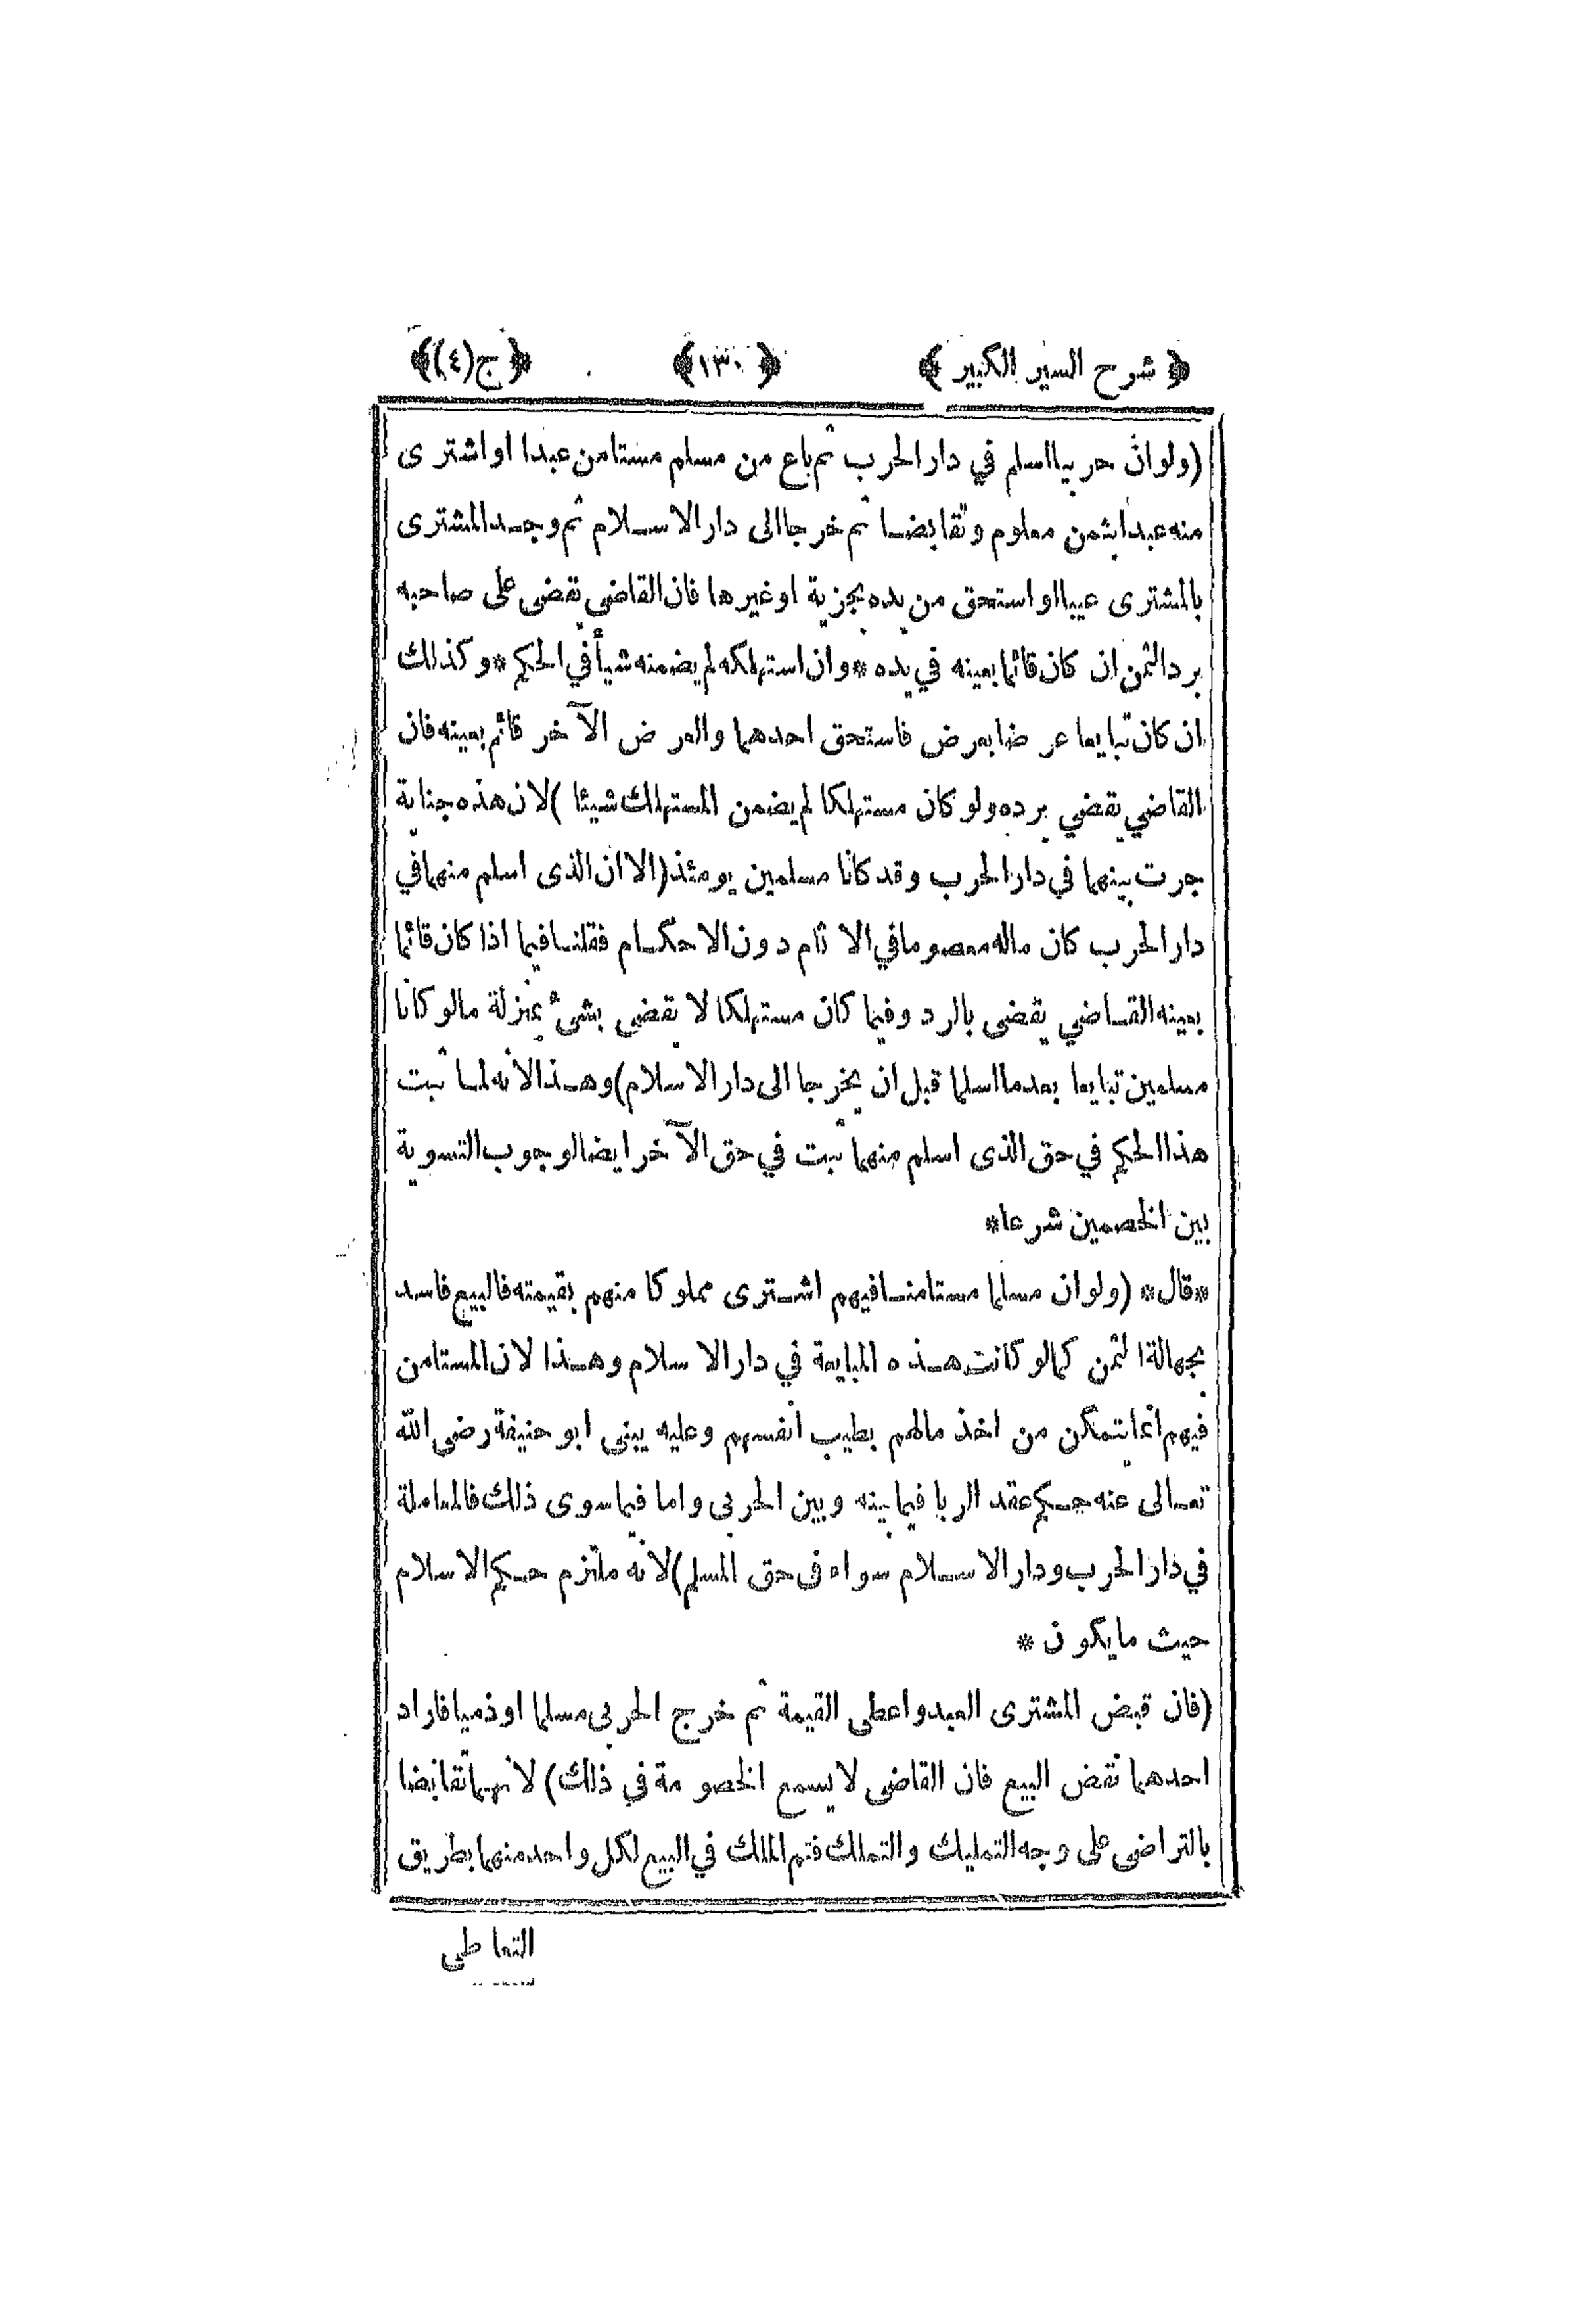 ﴿ شرح السير الكبير ﴾ ﴿ ١٣٠ ﴾ ﴿ ج(٤) ﴾
(ولو ان حربيا اسلم في دار الحرب ثم باع من مسلم مستامن عبدا او اشترى
منه عبدا بثمن معلوم وتقابضا ثم خرجا الى دار الاسلام ثم وجد المشترى
بالمشترى عيبا او استحق من يده بجزية او غيرها فان القاضي يقضى على صاحبه
برد الثمن ان كان قائما بعينه في يده * وان استهلكه لم يضمنه شيأ في الحكم * وكذلك
ان كان تبايعا عرضا بعرض فاستحق احدهما والعرض الآخر قائم بعينه فان
القاضي يقضي برده ولو كان مستهلكا لم يضمن المستهلك شيئا )لان هذه جناية
جرت بينهما في دار الحرب وقد كانا مسلمين يومئذ(الا ان الذى اسلم منهما في
دار الحرب كان ماله معصوما في الا ثام دون الاحكام فقلنا فيما اذا كان قائما
بعينه القاضي يقضى بالرد وفيما كان مستهلكا لا يقضى بشئ بمنزلة مالو كانا
مسلمين تبايعا بعدما اسلما قبل ان يخرجا الى دار الاسلام)وهذا لانه لما ثبت
هذا الحكم في حق الذى اسلم منهما ثبت في حق الآخر ايضا لوجوب التسوية
بين الخصمين شرعا*
*قال* (ولو ان مسلما مستامنا فيهم اشترى مملوكا منهم بقيمته فالبيع فاسد
بجهالة الثمن كمالو كانت هذه المبايعة في دار الاسلام وهذا لان المستامن
فيهم انما يتمكن من اخذ مالهم بطيب انفسهم وعليه يبنى ابو حنيفة رضى الله
تعالى عنه حكم عقد الربا فيما بينه وبين الحربى واما فيما سوى ذلك فالمعاملة
في دار الحرب ودار الاسلام سواء فى حق المسلم)لانه ملتزم حكم الاسلام
حيث ما يكون *
(فان قبض المشترى العبد واعطى القيمة ثم خرج الحربى مسلما او ذميا فاراد
احدهما نقض البيع فان القاضى لا يسمع الخصومة في ذلك) لانهما تقابضا
بالتراضى على وجه التمليك والتملك فتم الملك في البيع لكل واحد منهما بطريق
التعاطى